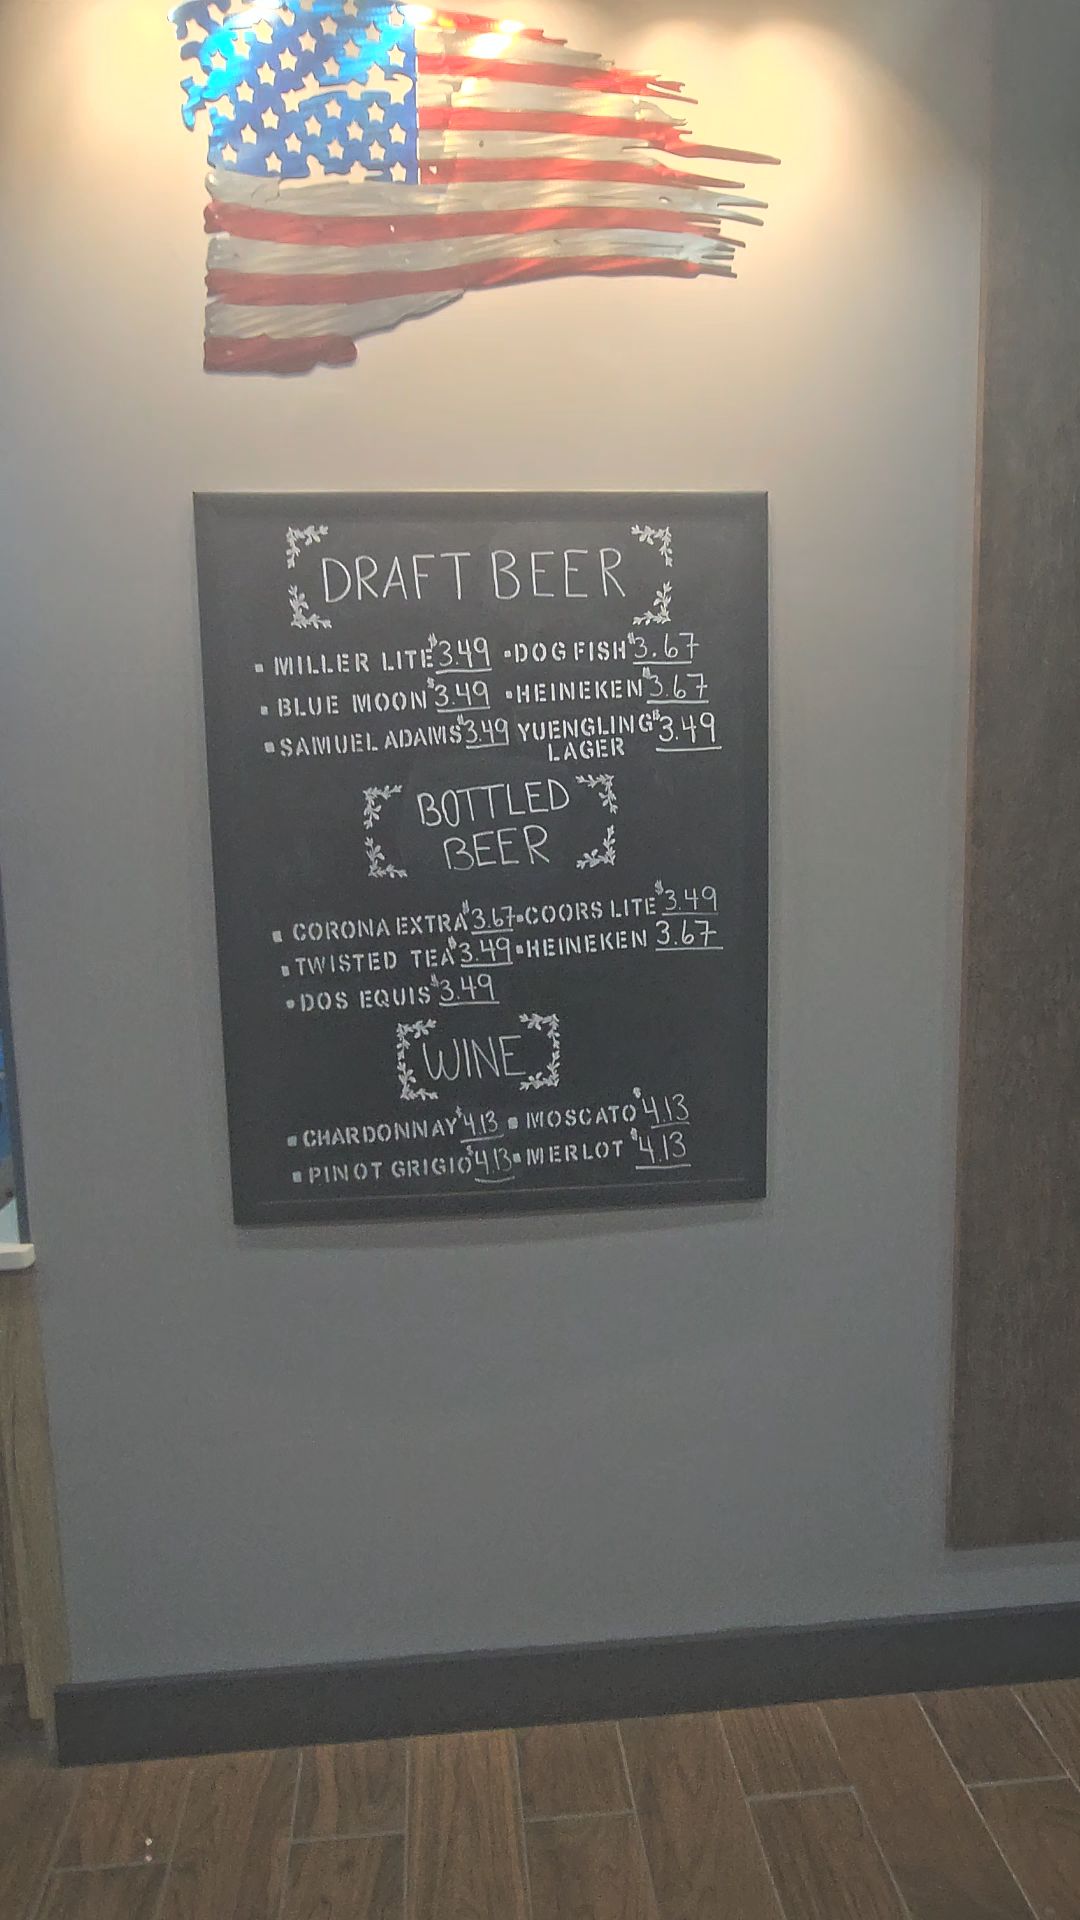 DRAFT BEER
▪ MILLER LITE $3.49 ▪ DOG FISH $3.67
▪ BLUE MOON $3.49 ▪ HEINEKEN $3.67
▪ SAMUEL ADAMS $3.49 YUENGLING $3.49
LAGER
BOTTLED
BEER
▪ CORONA EXTRA $3.67 ▪ COORS LITE $3.49
▪ TWISTED TEA $3.49 ▪ HEINEKEN 3.67
▪ DOS EQUIS $3.49
WINE
▪ CHARDONNAY $4.13 ▪ MOSCATO $4.13
▪ PINOT GRIGIO $4.13 ▪ MERLOT $4.13